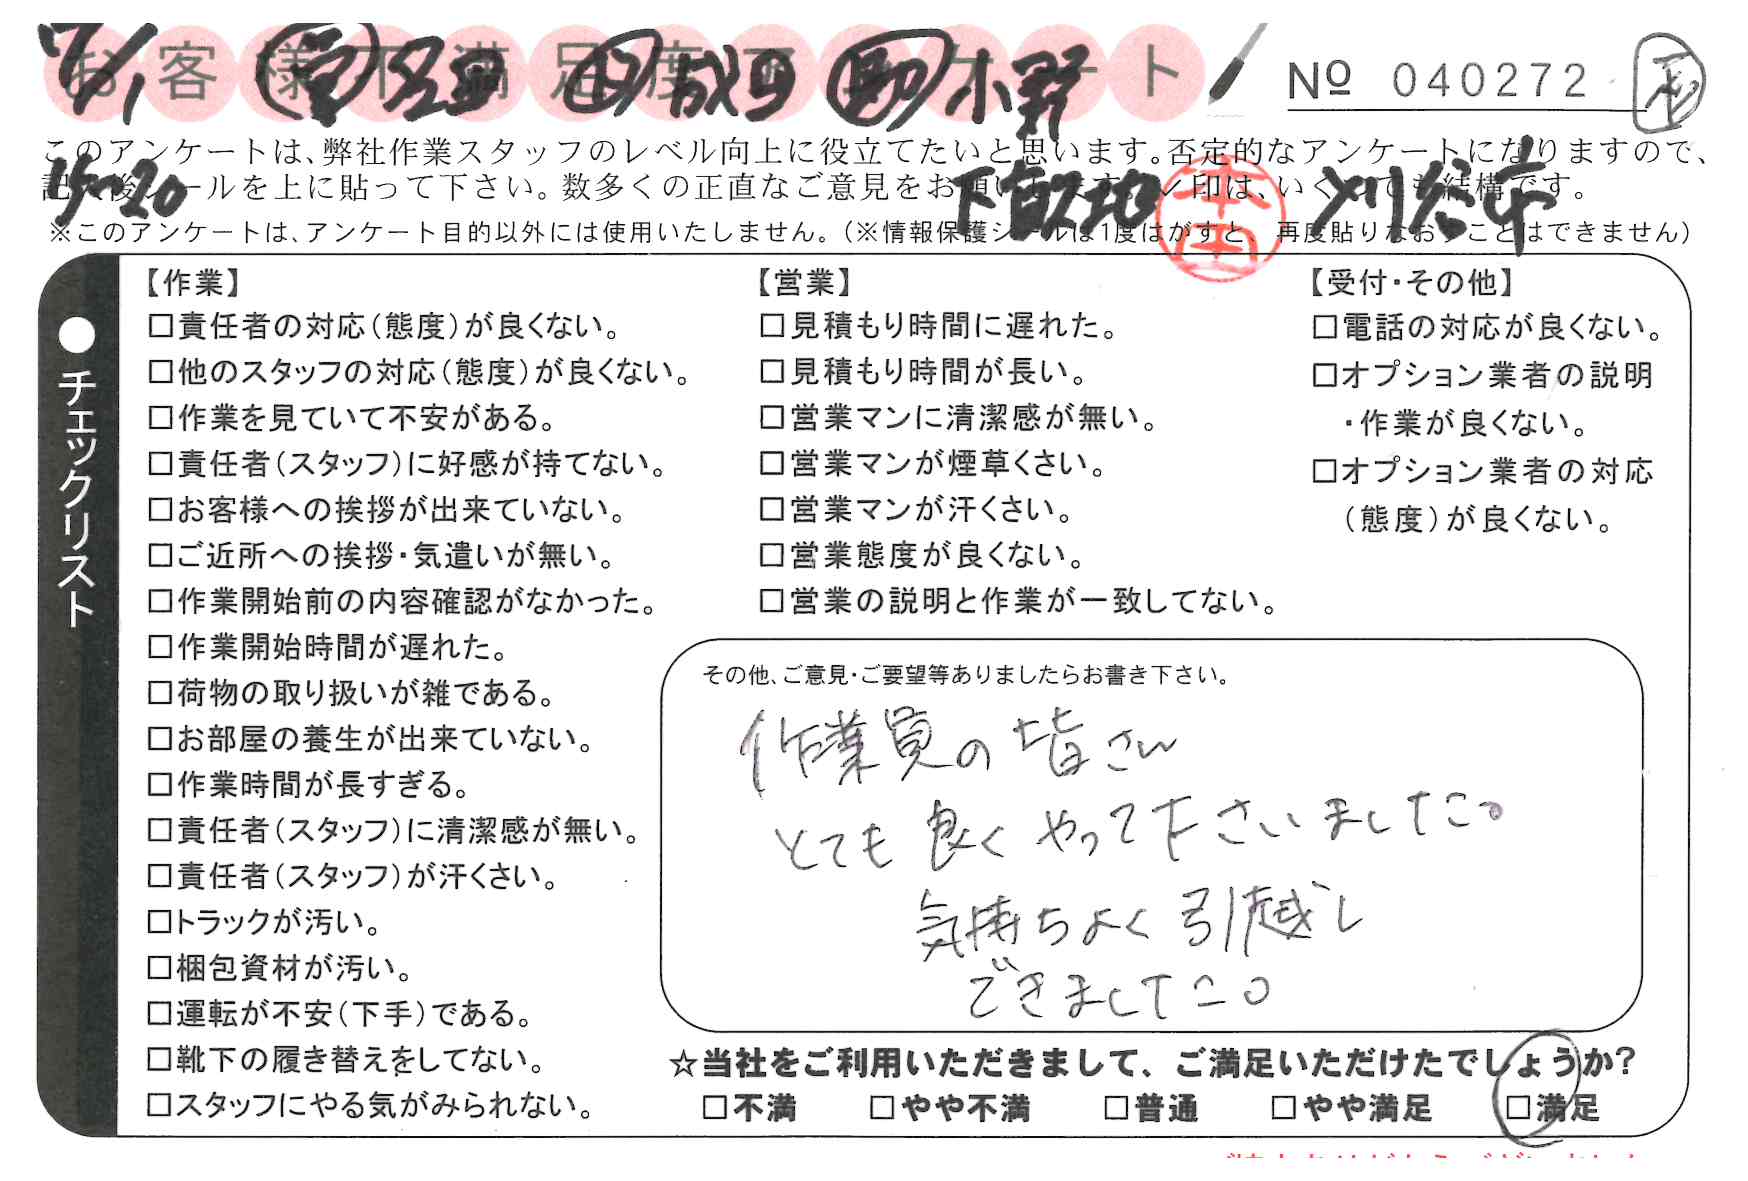 お客様不満足度アンケート
7/1 営 名五 ㊤ 成田 助 小野
№ 040272
このアンケートは、弊社作業スタッフのレベル向上に役立てたいと思います。否定的なアンケートになりますので、
記入後シールを上に貼って下さい。数多くの正直なご意見をお願いします。レ印は、いくつでも結構です。
15-20 下見スエ地 本田 刈谷市
※このアンケートは、アンケート目的以外には使用いたしません。(※情報保護シールは1度はがすと、再度貼りなおすことはできません)
●チェックリスト
【作業】
□責任者の対応(態度)が良くない。
□他のスタッフの対応(態度)が良くない。
□作業を見ていて不安がある。
□責任者(スタッフ)に好感が持てない。
□お客様への挨拶が出来ていない。
□ご近所への挨拶・気遣いが無い。
□作業開始前の内容確認がなかった。
□作業開始時間が遅れた。
□荷物の取り扱いが雑である。
□お部屋の養生が出来ていない。
□作業時間が長すぎる。
□責任者(スタッフ)に清潔感が無い。
□責任者(スタッフ)が汗くさい。
□トラックが汚い。
□梱包資材が汚い。
□運転が不安(下手)である。
□靴下の履き替えをしてない。
□スタッフにやる気がみられない。
【営業】
□見積もり時間に遅れた。
□見積もり時間が長い。
□営業マンに清潔感が無い。
□営業マンが煙草くさい。
□営業マンが汗くさい。
□営業態度が良くない。
□営業の説明と作業が一致してない。
【受付・その他】
□電話の対応が良くない。
□オプション業者の説明
・作業が良くない。
□オプション業者の対応
(態度)が良くない。
その他、ご意見・ご要望等ありましたらお書き下さい。
作業員の皆さん
とても良くやって下さいました。
気持ちよく引越し
できました。
☆当社をご利用いただきまして、ご満足いただけたでしょうか?
□不満 □やや不満 □普通 □やや満足 □満足